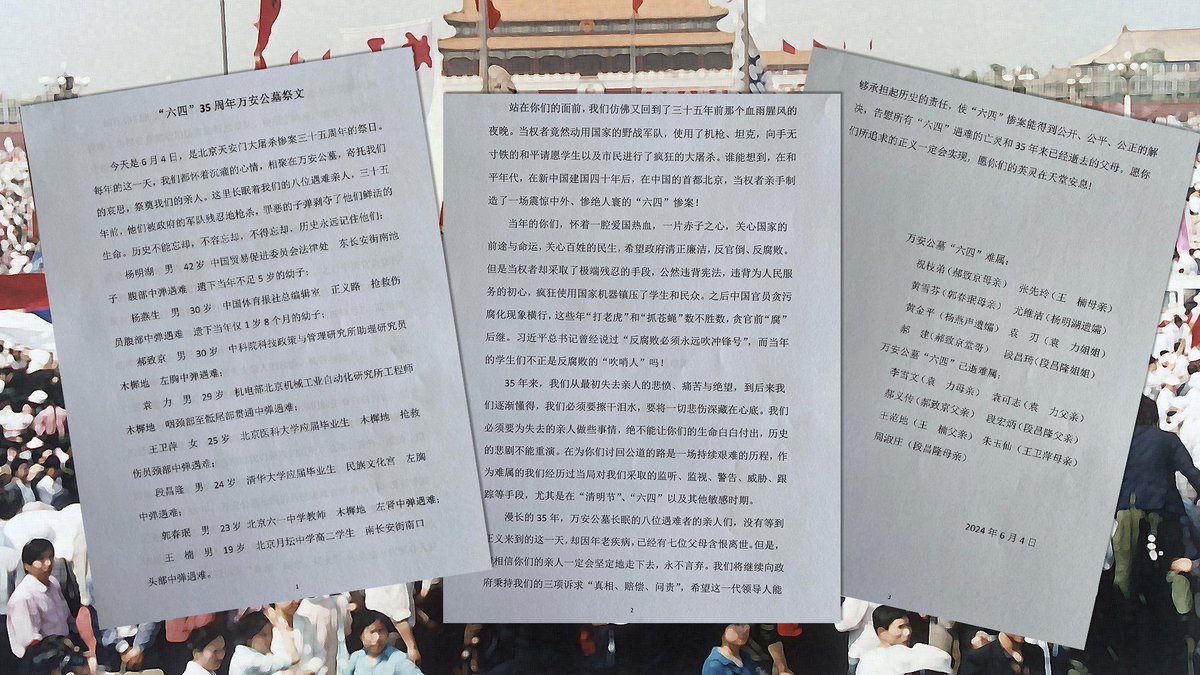 “六四”35 周年万安公墓祭文
今天是 6 月 4 日，是北京天安门大屠杀惨案三十五周年的祭日。
每年的这一天，我们都怀着沉痛的心情，相聚在万安公墓，寄托我们
的哀思，祭奠我们的亲人。这里长眠着我们的八位遇难亲人，三十五
年前，他们被政府的军队残忍地枪杀，罪恶的子弹剥夺了他们鲜活的
生命。历史不能忘却，不容忘却，不得忘却，历史永远记住他们：
杨明湖 男 42 岁 中国贸易促进委员会法律处 东长安街南池
子 腹部中弹遇难 遗下当年不足 5 岁的幼子；
杨燕生 男 30 岁 中国体育报社总编辑室 正义路 抢救伤
员腹部中弹遇难 遗下当年仅 1 岁 8 个月的幼子；
郝致京 男 30 岁 中科院科技政策与管理研究所助理研究员
木樨地 左胸中弹遇难；
袁 力 男 29 岁 机电部北京机械工业自动化研究所工程师
木樨地 咽颈部至骶尾部贯通中弹遇难；
王卫萍 女 25 岁 北京医科大学应届毕业生 木樨地 抢救
伤员颈部中弹遇难；
段昌隆 男 24 岁 清华大学应届毕业生 民族文化宫 左胸
中弹遇难；
郭春珉 男 23 岁 北京六一中学教师 木樨地 左肾中弹遇难；
王 楠 男 19 岁 北京月坛中学高二学生 南长安街南口
头部中弹遇难。
1
站在你们的面前，我们仿佛又回到了三十五年前那个血雨腥风的
夜晚。当权者竟然动用国家的野战军队，使用了机枪、坦克，向手无
寸铁的和平请愿学生以及市民进行了疯狂的大屠杀。谁能想到，在和
平年代，在新中国建国四十年后，在中国的首都北京，当权者亲手制
造了一场震惊中外、惨绝人寰的“六四”惨案！
当年的你们，怀着一腔爱国热血，一片赤子之心，关心国家的
前途与命运，关心百姓的民生，希望政府清正廉洁，反官倒、反腐败。
但是当权者却采取了极端残忍的手段，公然违背宪法，违背为人民服
务的初心，疯狂使用国家机器镇压了学生和民众。之后中国官员贪污
腐化现象横行，这些年“打老虎”和“抓苍蝇”数不胜数，贪官前“腐”
后继。习近平总书记曾经说过“反腐败必须永远吹冲锋号”，而当年
的学生们不正是反腐败的“吹哨人”吗！
35 年来，我们从最初失去亲人的悲愤、痛苦与绝望，到后来我
们逐渐懂得，我们必须要擦干泪水，要将一切悲伤深藏在心底。我们
必须要为失去的亲人做些事情，绝不能让你们的生命白白付出，历史
的悲剧不能重演。在为你们讨回公道的路是一场持续艰难的历程，作
为难属的我们经历过当局对我们采取的监听、监视、警告、威胁、跟
踪等手段，尤其是在“清明节”、“六四”以及其他敏感时期。
漫长的 35 年，万安公墓长眠的八位遇难者的亲人们，没有等到
正义来到的这一天，却因年老疾病，已经有七位父母含恨离世。但是，
相信你们的亲人一定会坚定地走下去，永不言弃。我们将继续向政
府秉持我们的三项诉求“真相、赔偿、问责”，希望这一代领导人能
2
够承担起历史的责任，使“六四”惨案能得到公开、公平、公正的解
决，告慰所有“六四”遇难的亡灵和 35 年来已经逝去的父母。愿你
们所追求的正义一定会实现，愿你们的英灵在天堂安息！
万安公墓“六四”难属：
祝枝弟(郝致京母亲) 张先玲(王 楠母亲)
黄雪芬(郭春珉母亲) 尤维洁(杨明湖遗孀)
黄金平(杨燕声遗孀) 袁 刃(袁 力姐姐)
郝 建(郝致京堂哥) 段昌琦(段昌隆姐姐)
万安公墓“六四”已逝难属：
李雪文(袁 力母亲) 袁可志(袁 力父亲)
郝义传(郝致京父亲) 段宏炳(段昌隆父亲)
王范地(王 楠父亲) 朱玉仙(王卫萍母亲)
周淑庄(段昌隆母亲)
2024 年 6 月 4 日
3